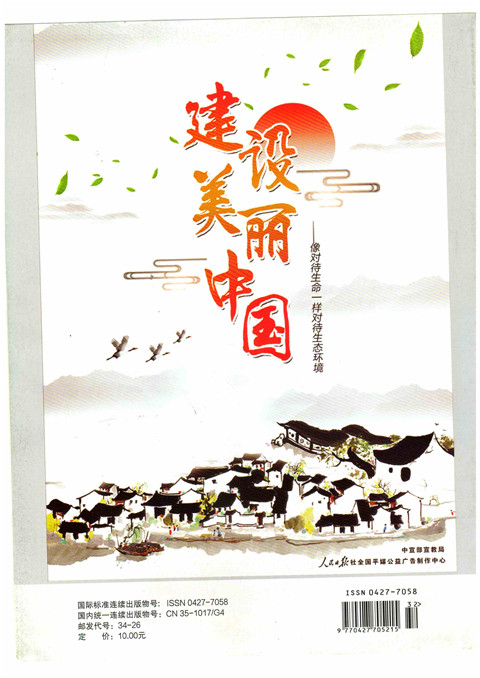 建设
美丽
中国
——像对待生命一样对待生态环境
中宣部宣教局
人民日报社全国平媒公益广告制作中心
国际标准连续出版物号：ISSN 0427-7058
国内统一连续出版物号：CN 35-1017/G4
邮发代号：34-26
定　　价：10.00元
ISSN 0427-7058
32>
9 770427 705215